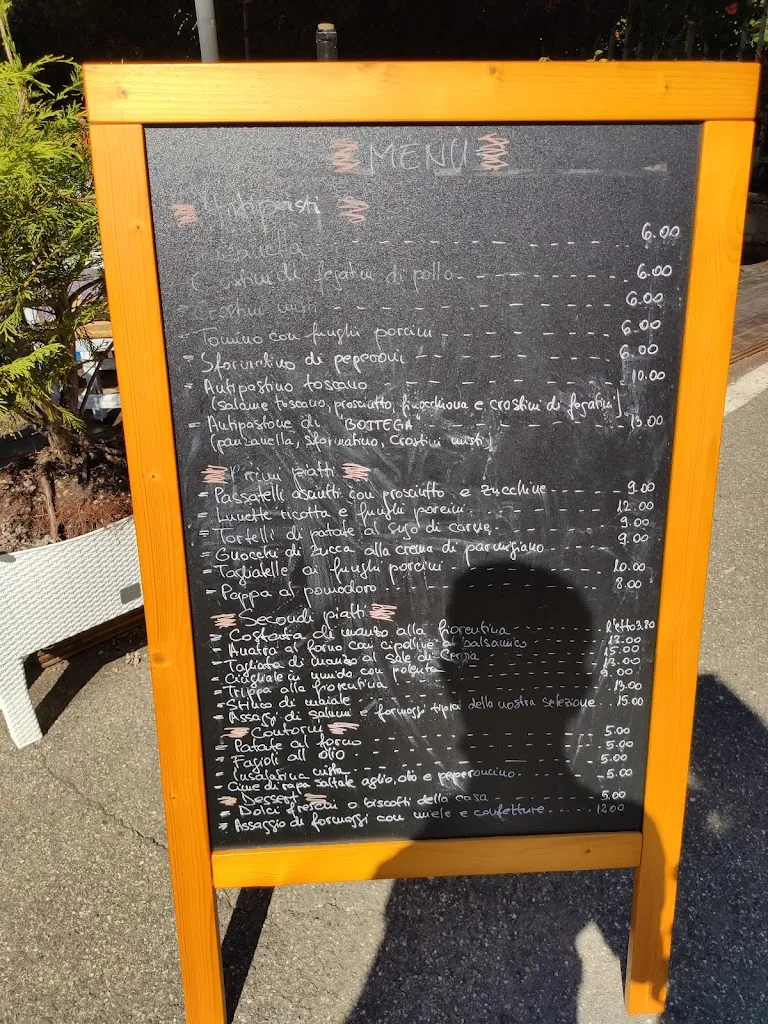 MENÙ
Antipasti
Panzanella 6.00
Crostini di fegatini di pollo 6.00
Crostini misti 6.00
Tomino con funghi porcini 6.00
= Sformatino di peperoni 6.00
= Antipastino toscano 10.00
(salame toscano, prosciutto, finocchiona e crostini di fegatini)
= Antipastone di "BOTTEGA" 13.00
(panzanella, Sformatino, Crostini misti)
Primi piatti
= Passatelli asciutti con prosciutto e zucchine 9.00
= Lunette ricotta e funghi porcini 12.00
= Tortelli di patate al sugo di carne 9.00
= Gnocchi di zucca alla crema di parmigiano 9.00
= Tagliatelle ai funghi porcini 10.00
= Pappa al pomodoro 8.00
Secondi piatti
= Costata di manzo alla fiorentina l'etto 3.80
= Anatra al forno con cipolline al balsamico 12.00
= Tagliata di manzo al sale di Cervia 15.00
= Cinghiale in umido con polenta 13.00
= Trippa alla fiorentina 9.00
= Stinco di maiale 13.00
= Assaggi di salumi e formaggi tipici della nostra selezione 15.00
Contorni
= Patate al forno 5.00
= Fagioli all'olio 5.00
= Insalatina mista 5.00
- Cime di rapa saltate aglio, olio e peperoncino 5.00
Dessert
= Dolci freschi o biscotti della casa 5.00
= Assaggio di formaggi con miele e confetture 12.00